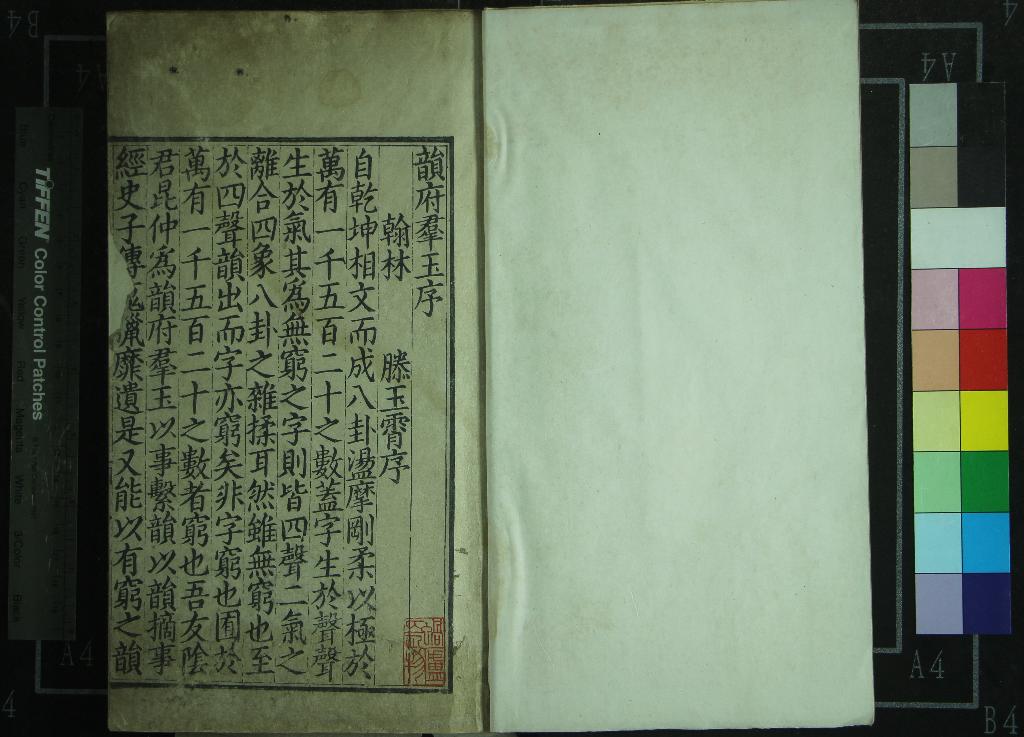 韻府羣玉序
翰林 滕玉霄序
自乾坤相文而成八卦盪摩剛柔以極於
萬有一千五百二十之數蓋字生於聲聲
生於氣其爲無窮之字則皆四聲二氣之
離合四象八卦之雜揉耳然雖無窮也至
於四聲韻出而字亦窮矣非字窮也囿於
萬有一千五百二十之數者窮也吾友陰
君昆仲爲韻府羣玉以事繫韻以韻摘事
經史子傳獵靡遺是又能以有窮之韻
TIFFEN Color Control Patches
Blue Cyan Green Yellow Red Magenta White 3/Color Black
A4
A4
A4
A4
B4
B4
4
4